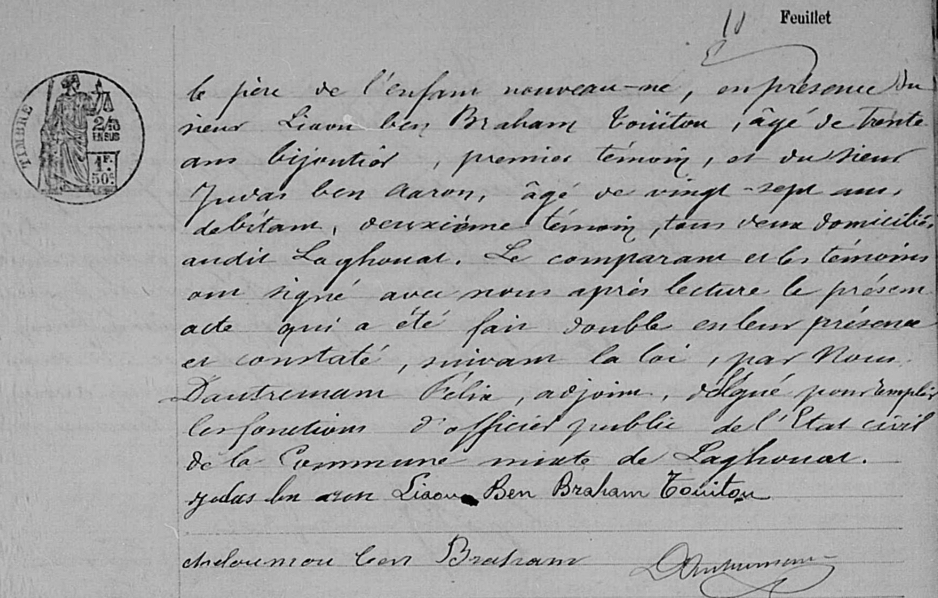 10 Feuillet
TIMBRE
2/10
EN SUS
1F.
50c.
le père de l'enfant nouveau-né, en présence du
sieur Liaou ben Braham Touitou, âgé de trente
ans bijoutier, premier témoin, et du sieur
Judas ben Aaron, âgé de vingt-sept ans,
débitant, deuxième témoin, tous deux domiciliés
audit Laghouat. Le comparant et les témoins
ont signé avec nous après lecture le présent
acte qui a été fait double en leur présence
et constaté, suivant la loi, par Nous
Dautremant Félix, adjoint, délégué pour remplir
les fonctions d'officier public de l'Etat civil
de la Commune mixte de Laghouat.
Judas ben aron Liaou Ben Braham Touitou
chaloumou ben Braham